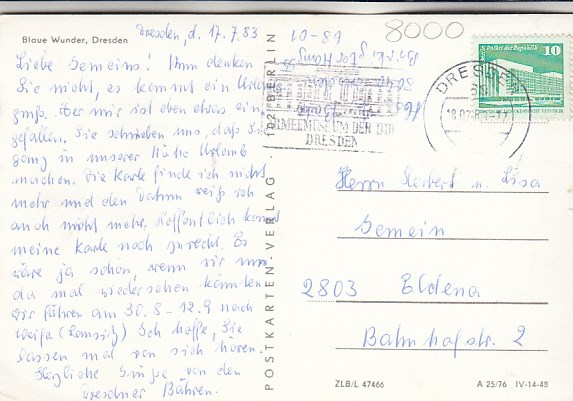 8000
Blaue Wunder, Dresden
Dresden, d. 17.7.83
Liebe Gemeins! Ihr denken
Sie nicht, es kommt ein Urlaubs
gruß. Aber mir ist eben etwas ein
gefallen. Sie schrieben uns, daß Sie
ganz in unserer Nähe Urlaub
machen. Die Karte finde ich nicht
mehr und den Datum weiß ich
auch nicht mehr. Hoffentlich kommt
meine Karte noch zurecht. Es
wäre ja schön, wenn wir uns
da mal wiedersehen könnten
Wir fahren am 30.8-12.9 nach
(Lausitz) Ich hoffe, Sie
lassen mal von sich hören.
Herzliche Grüße von den
Dresdner Bähren.
68-01
POSTKARTEN-VERLAG · 102 BERLIN
ARMEEMUSEUM DER DDR
DRESDEN
DRESDEN
Palast der Republik
10
Herrn Herbert u. Lisa
Gemein
2803 Eldena
Bahnhofstr. 2
ZLB/L 47466
A 25/76 IV-14-48